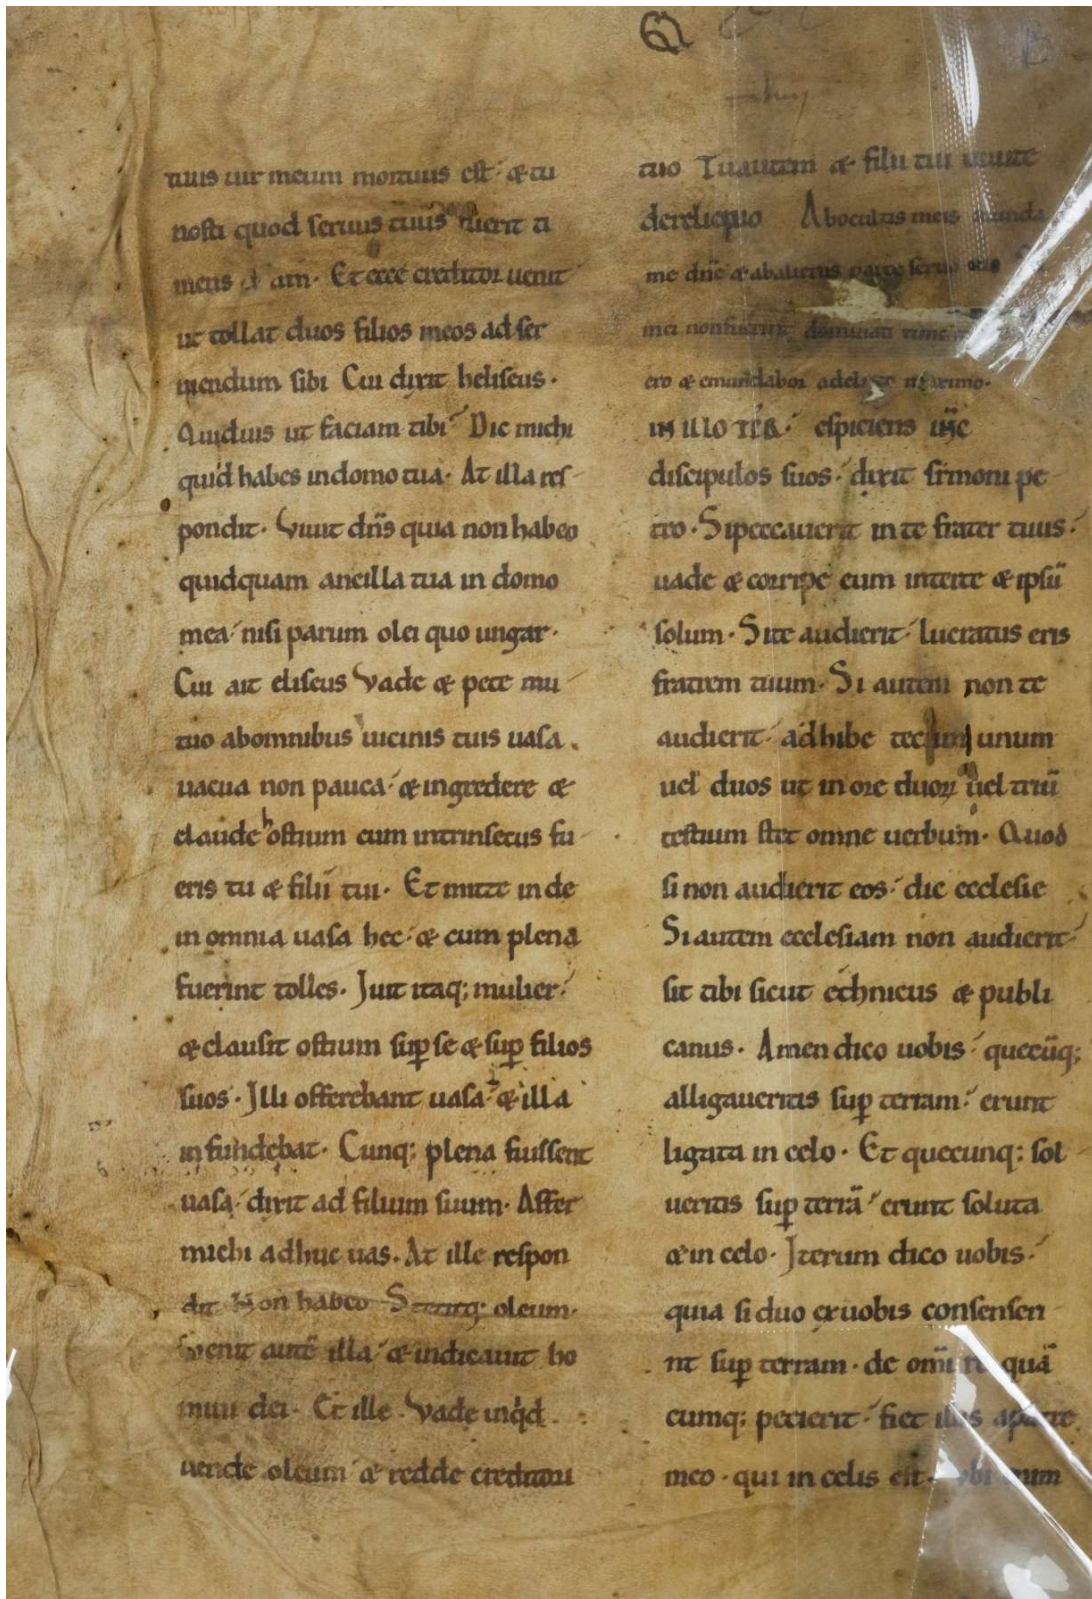 Q
tuus uir meum mortuus est· & tu
nosti quod seruus tuus fuerit ti
mens d am· Et ecce creditor uenit
ut tollat duos filios meos ad ser
uiendum sibi Cui dixit heliseus·
Quiduis ut faciam tibi Dic michi
quid habes indomo tua· At illa res
pondit· Viuit dn̄s quia non habeo
quidquam ancilla tua in domo
mea nisi parum olei quo ungar·
Cui ait eliseus Vade & pete mu
tuo abomnibus uicinis tuis uasa
uacua non pauca & ingredere &
claude hostium cum intrinsecus fu
eris tu & filii tui· Et mitte inde
in omnia uasa hec & cum plena
fuerint tolles· Iuit itaq; mulier
& clausit ostium sup̱ se & sup̱ filios
suos· Illi offerebant uasa & illa
infundebat· Cunq; plena fuissent
uasa dixit ad filium suum· Affer
michi adhuc uas. At ille respon
dit Non habeo Stetitq; oleum·
Venit autē illa & indicauit ho
mini dei· Et ille Vade inq̇d
uende oleum & redde creditori
tuo Tu autem & filii tui uiuite
de reliquo Abocultis meis munda
me dn̄e & abalienis parce seruo
mei non fuerint dominati tunc
ero & emundabor adelicto maximo·
IN ILLO TE̅R· espiciens ih̅c
discipulos suos dixit simoni pe
tro· Si peccauerit in te frater tuus
uade & corripe eum inter te & ipsū
solum· Si te audierit lucratus eris
fratrem tuum· Si autem non te
audierit adhibe tecum unum
uel duos ut in ore duoꝝ uel triū
testium stet omne uerbum· Quod
si non audierit eos dic ecclesie
Si autem ecclesiam non audierit
sit tibi sicut ethnicus & publi
canus· Amen dico uobis quecūq;
alligaueritis sup̱ terram erunt
ligata in celo· Et quecunq; sol
ueritis sup̱ terrā erunt soluta
& in celo· Iterum dico uobis
quia si duo exuobis consenseri
nt sup̱ terram· de om̄i re quā
cumq; pecierit fiet illis a patre
meo· qui in celis est· Vbi enim